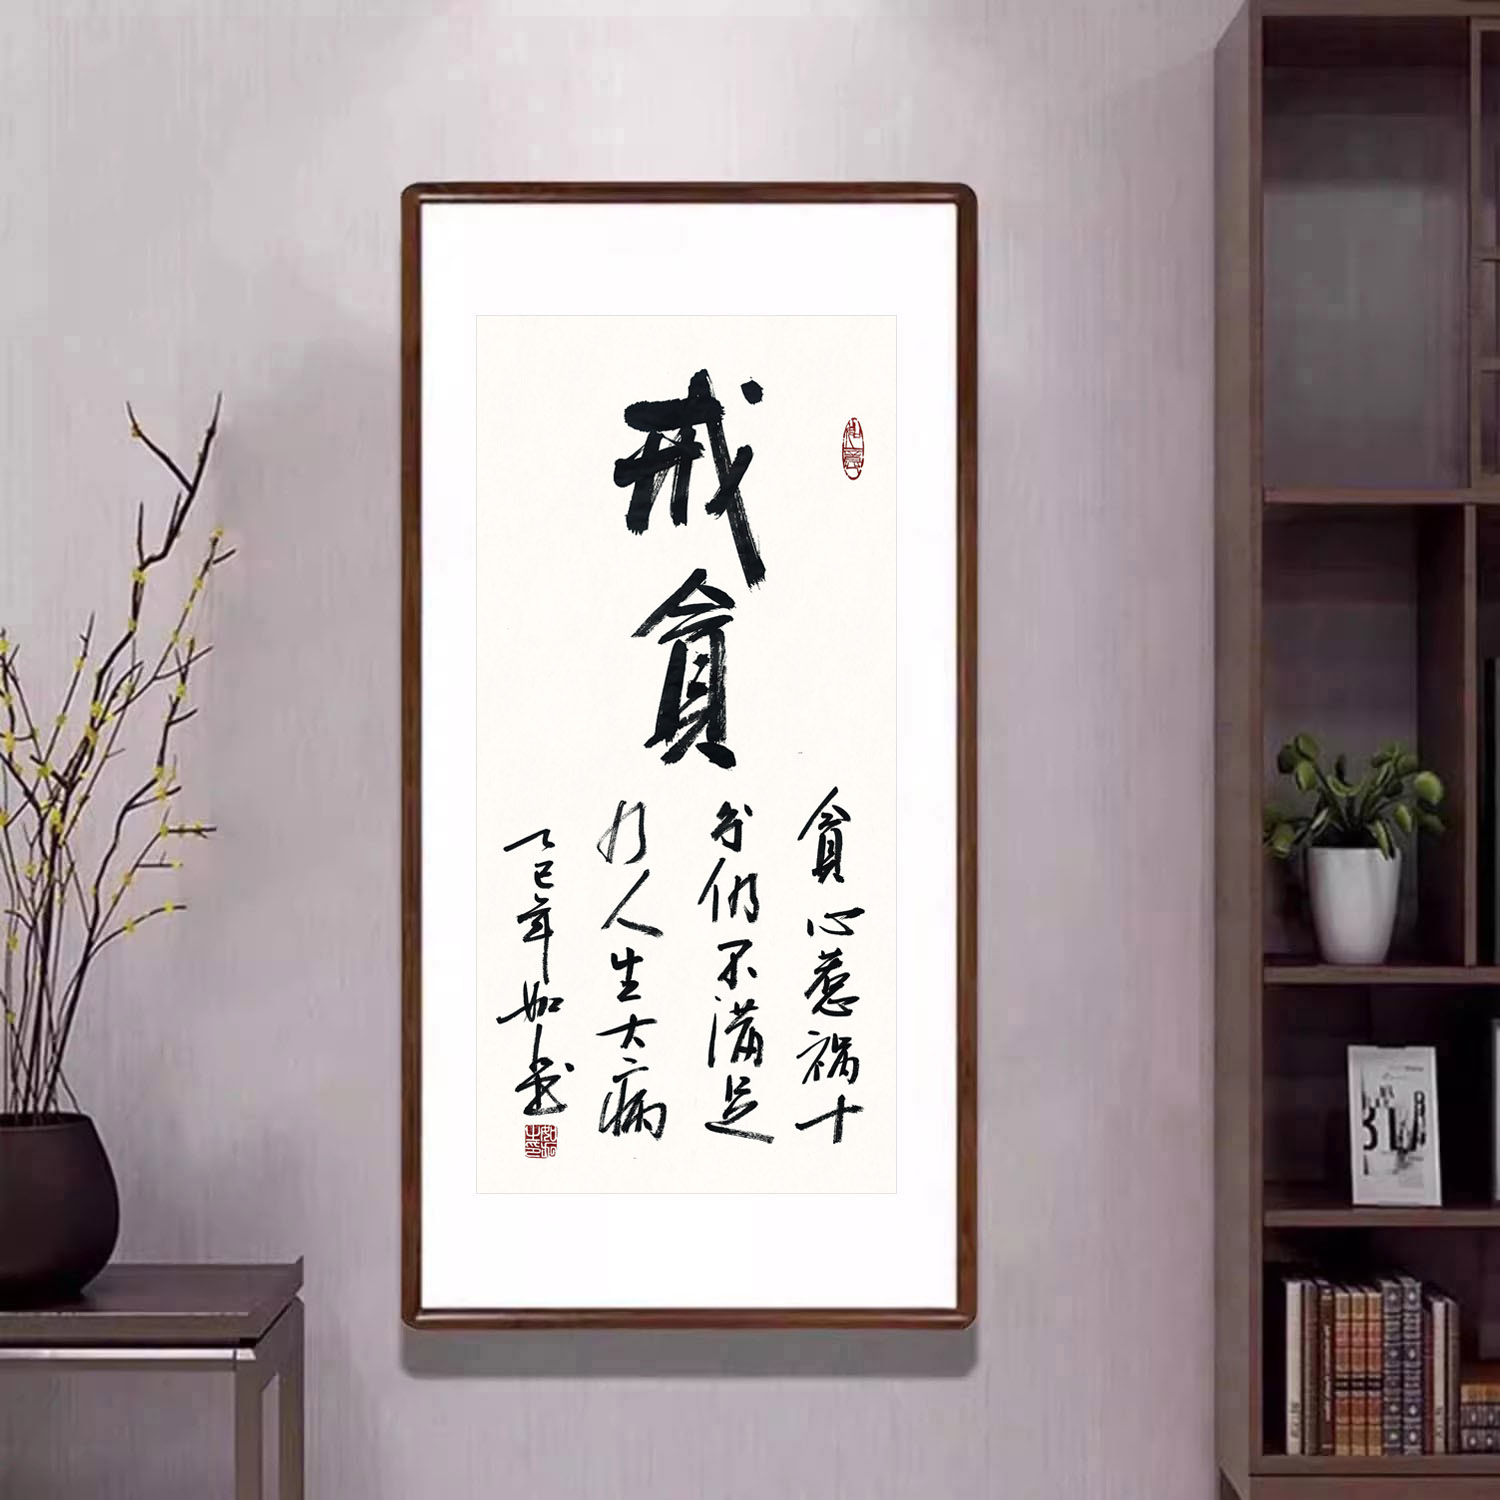 戒貪
貪心惹祸十
分仍不满足
乃人生大病
乙巳年如
如意